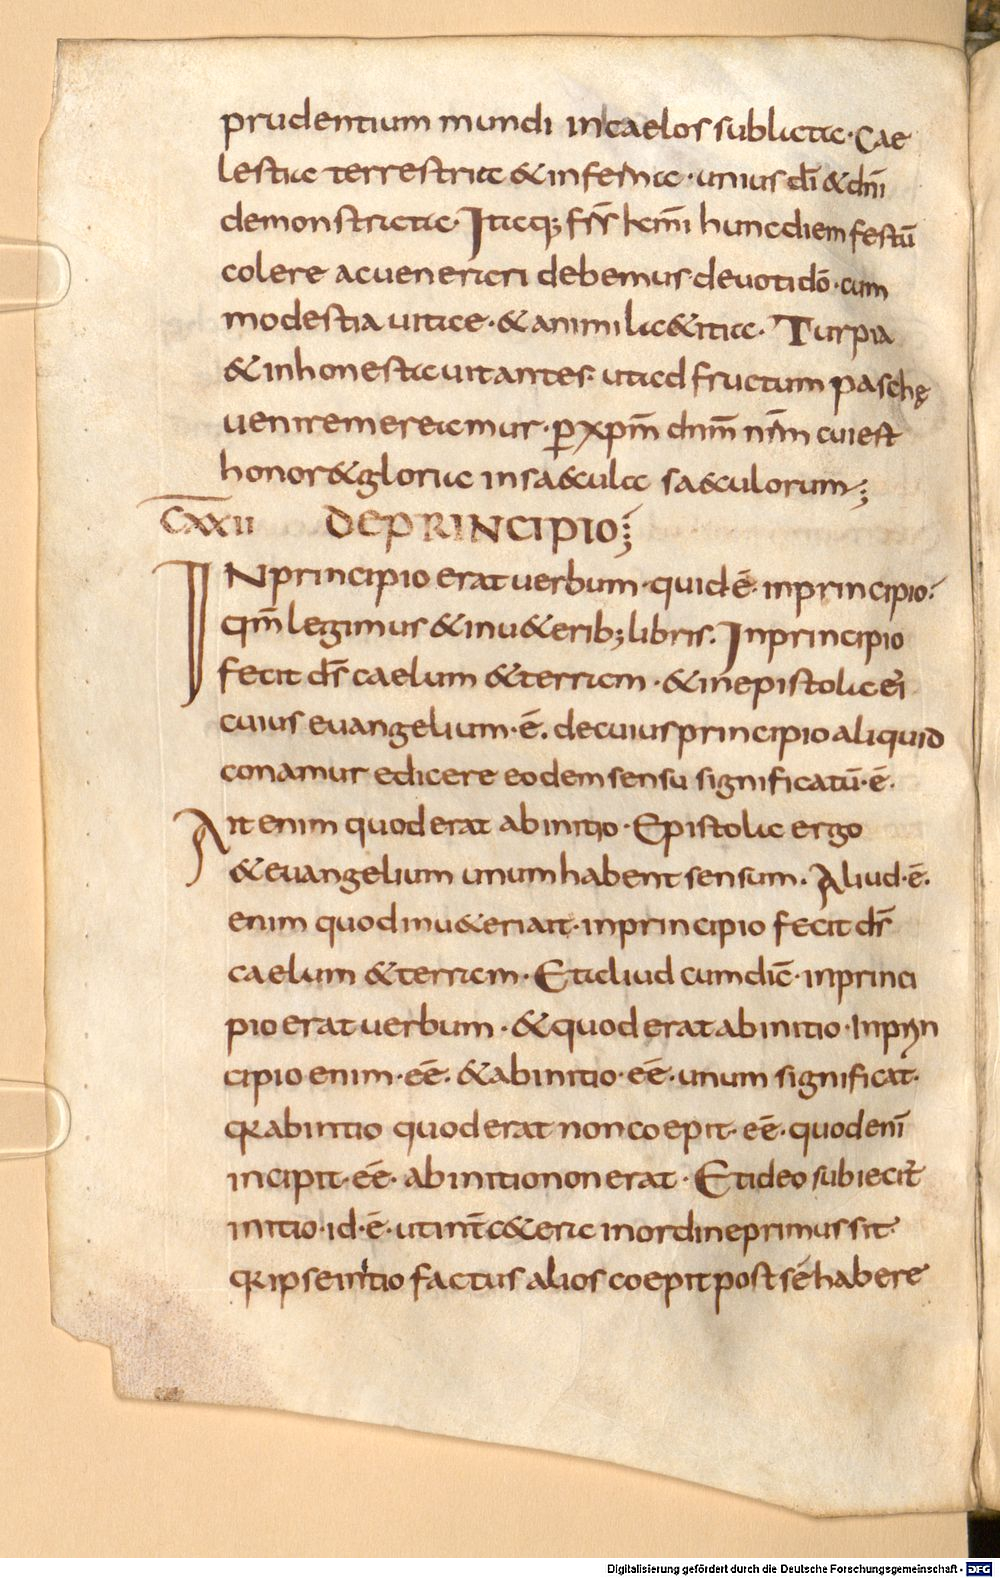 prudentium mundi incaelos sublata· Cae
lestia terrestria & inferna· unius dī & dn̄i
demonstrata· Itaq; fr̄s kmī hunc diem festū
colere ac uenerari debemus deuoti dō· cum
modestia uitae· & animi la&itia· Turpia
& inhonesta uitantes· ut ad fructum paschę
uenire mereamur· ꝑ xp̄m dn̄m nr̄m cui est
honor & gloria in sa&cula sa&culorum;
CXXII DE PRINCIPIO;
IN principio erat uerbum· quid ē· in principio?
qm̄ legimus & in u&erib; libris. In principio
fecit ds̄ caelum & terram· & in epistola ei
cuius euangelium· ē. de cuius principio aliquid
conamur edicere eodem sensu significatū· ē·
Ait enim quod erat ab initio· Epistola ergo
& euangelium unum habent sensum. Aliud· ē.
enim quod in u&eri ait· in principio fecit ds̄
caelum & terram· Et aliud cum dic̄· in princi
pio erat uerbum· & quod erat ab initio· In prin
cipio enim· eē. & ab initio· eē· unum significat·
qR ab initio quod erat non coepit· eē· quod eni
incipit· eē· ab initio non erat· Et ideo subiecit
initio· id· ē· ut int̄ c&era in ordine primus sit·
qR ipse initio factus alios coepit post sē habere
Digitalisierung gefördert durch die Deutsche Forschungsgemeinschaft - DFG